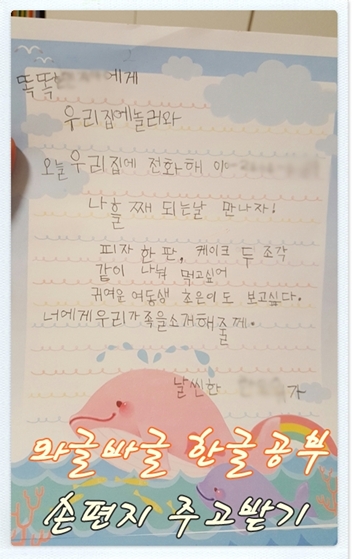 똑똑 에게
우리집에놀러와
오늘우리집에 전화해
나흘 째 되는날 만나자!
피자 한 판, 케이크 두 조각
같이 나눠 먹고싶어
귀여운 여동생 초은이도 보고싶다.
너에게우리가족을소개해줄께.
날씬한 가
와글바글 한글공부
손편지 주고받기